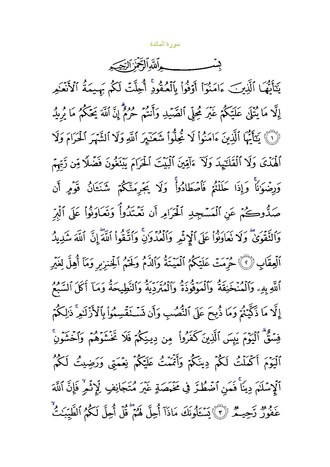 سورة المائدة
بِسْمِ ٱللَّهِ ٱلرَّحْمَٰنِ ٱلرَّحِيمِ
يَٰٓأَيُّهَا ٱلَّذِينَ ءَامَنُوٓا۟ أَوْفُوا۟ بِٱلْعُقُودِ ۚ أُحِلَّتْ لَكُم بَهِيمَةُ ٱلْأَنْعَٰمِ
إِلَّا مَا يُتْلَىٰ عَلَيْكُمْ غَيْرَ مُحِلِّى ٱلصَّيْدِ وَأَنتُمْ حُرُمٌ ۗ إِنَّ ٱللَّهَ يَحْكُمُ مَا يُرِيدُ
﴿١﴾ يَٰٓأَيُّهَا ٱلَّذِينَ ءَامَنُوا۟ لَا تُحِلُّوا۟ شَعَٰٓئِرَ ٱللَّهِ وَلَا ٱلشَّهْرَ ٱلْحَرَامَ وَلَا
ٱلْهَدْىَ وَلَا ٱلْقَلَٰٓئِدَ وَلَآ ءَآمِّينَ ٱلْبَيْتَ ٱلْحَرَامَ يَبْتَغُونَ فَضْلًا مِّن رَّبِّهِمْ
وَرِضْوَٰنًا ۚ وَإِذَا حَلَلْتُمْ فَٱصْطَادُوا۟ ۚ وَلَا يَجْرِمَنَّكُمْ شَنَـَٔانُ قَوْمٍ أَن
صَدُّوكُمْ عَنِ ٱلْمَسْجِدِ ٱلْحَرَامِ أَن تَعْتَدُوا۟ ۘ وَتَعَاوَنُوا۟ عَلَى ٱلْبِرِّ
وَٱلتَّقْوَىٰ ۖ وَلَا تَعَاوَنُوا۟ عَلَى ٱلْإِثْمِ وَٱلْعُدْوَٰنِ ۚ وَٱتَّقُوا۟ ٱللَّهَ ۖ إِنَّ ٱللَّهَ شَدِيدُ
ٱلْعِقَابِ ﴿٢﴾ حُرِّمَتْ عَلَيْكُمُ ٱلْمَيْتَةُ وَٱلدَّمُ وَلَحْمُ ٱلْخِنزِيرِ وَمَآ أُهِلَّ لِغَيْرِ
ٱللَّهِ بِهِۦ وَٱلْمُنْخَنِقَةُ وَٱلْمَوْقُوذَةُ وَٱلْمُتَرَدِّيَةُ وَٱلنَّطِيحَةُ وَمَآ أَكَلَ ٱلسَّبُعُ
إِلَّا مَا ذَكَّيْتُمْ وَمَا ذُبِحَ عَلَى ٱلنُّصُبِ وَأَن تَسْتَقْسِمُوا۟ بِٱلْأَزْلَٰمِ ۚ ذَٰلِكُمْ
فِسْقٌ ۗ ٱلْيَوْمَ يَئِسَ ٱلَّذِينَ كَفَرُوا۟ مِن دِينِكُمْ فَلَا تَخْشَوْهُمْ وَٱخْشَوْنِ ۚ
ٱلْيَوْمَ أَكْمَلْتُ لَكُمْ دِينَكُمْ وَأَتْمَمْتُ عَلَيْكُمْ نِعْمَتِى وَرَضِيتُ لَكُمُ
ٱلْإِسْلَٰمَ دِينًا ۚ فَمَنِ ٱضْطُرَّ فِى مَخْمَصَةٍ غَيْرَ مُتَجَانِفٍ لِّإِثْمٍ ۙ فَإِنَّ ٱللَّهَ
غَفُورٌ رَّحِيمٌ ﴿٣﴾ يَسْـَٔلُونَكَ مَاذَآ أُحِلَّ لَهُمْ ۖ قُلْ أُحِلَّ لَكُمُ ٱلطَّيِّبَٰتُ ۙ